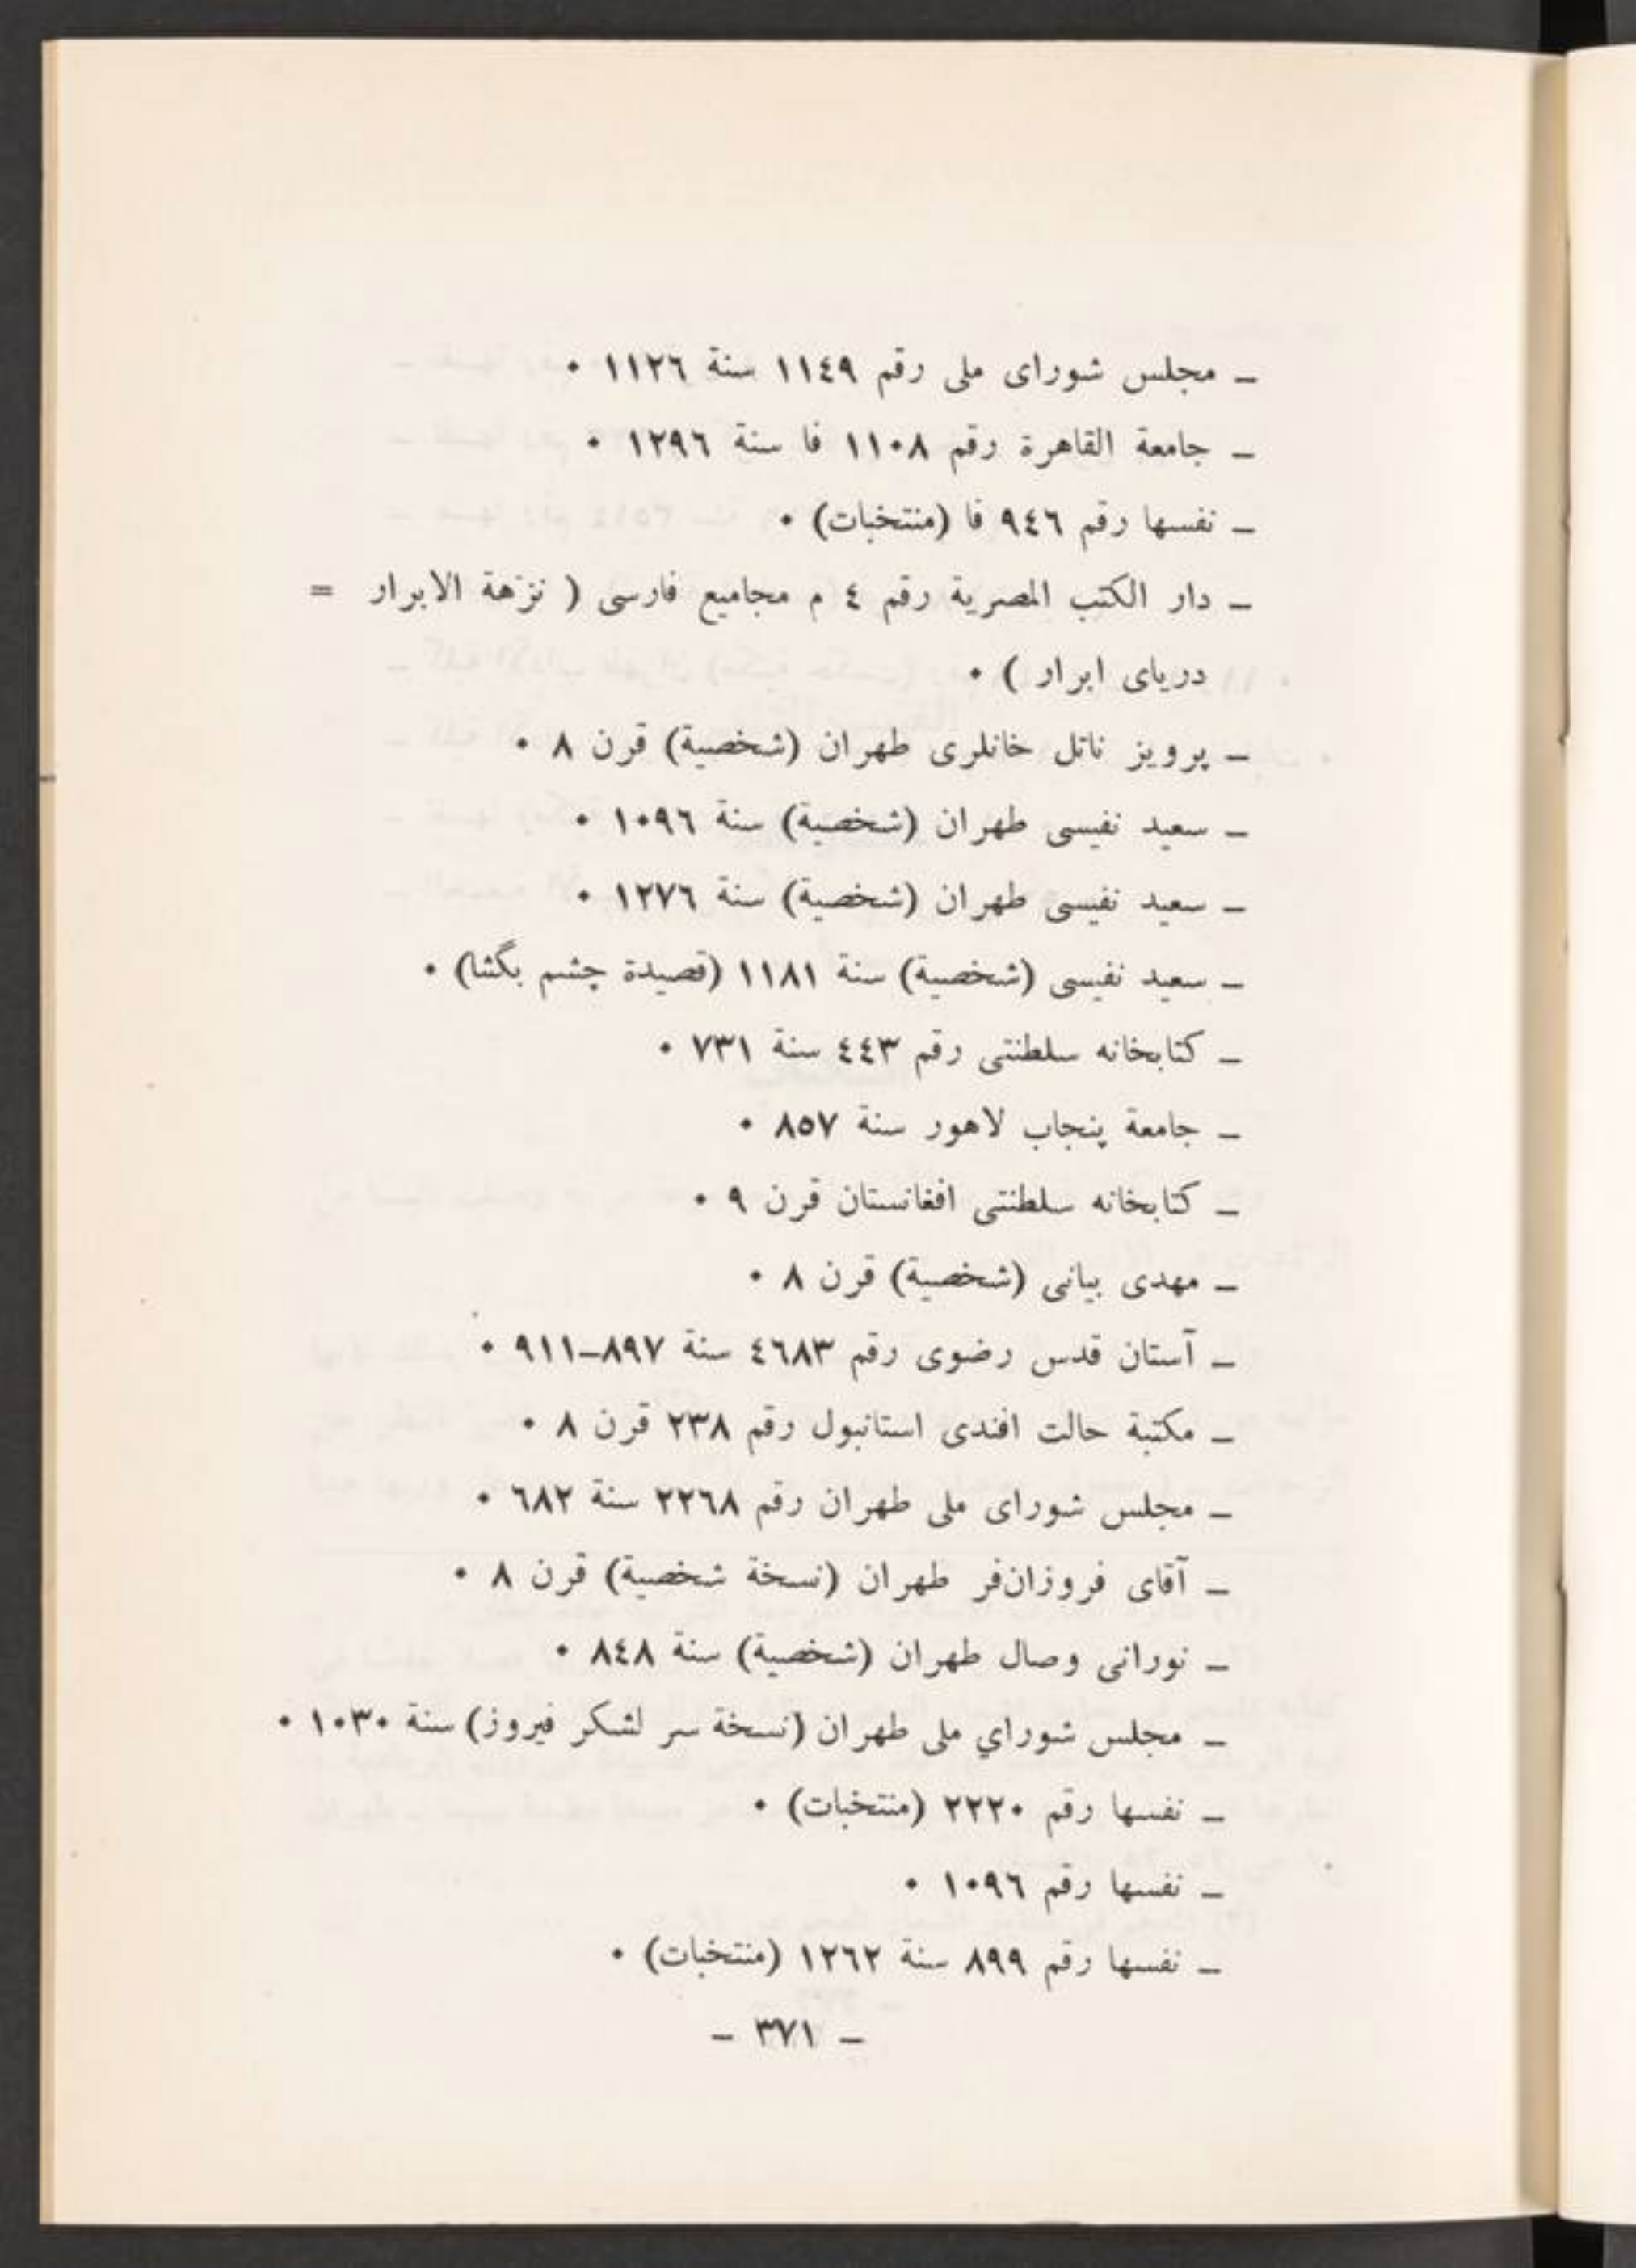 ـ مجلس شورای ملی رقم ١١٤٩ سنة ١١٢٦ •
ـ جامعة القاهرة رقم ١١٠٨ فا سنة ١٢٩٦ •
ـ نفسها رقم ٩٤٦ فا (منتخبات) •
ـ دار الكتب المصرية رقم ٤ م مجاميع فارسى ( نزهة الابرار =
دریای ابرار ) •
ـ پرویز ناتل خانلری طهران (شخصية) قرن ٨ •
ـ سعيد نفيسى طهران (شخصية) سنة ١٠٩٦ •
ـ سعيد نفيسى طهران (شخصية) سنة ١٢٧٦ •
ـ سعيد نفيسى (شخصية) سنة ١١٨١ (قصيدة چشم بگشا) •
ـ کتابخانه سلطنتی رقم ٤٤٣ سنة ٧٣١ •
ـ جامعة پنجاب لاهور سنة ٨٥٧ •
ـ کتابخانه سلطنتی افغانستان قرن ٩ •
ـ مهدی بیانی (شخصية) قرن ٨ •
ـ آستان قدس رضوی رقم ٤٦٨٣ سنة ٨٩٧–٩١١ •
ـ مكتبة حالت افندی استانبول رقم ٢٣٨ قرن ٨ •
ـ مجلس شورای ملی طهران رقم ٢٢٦٨ سنة ٦٨٢ •
ـ آقای فروزان‌فر طهران (نسخة شخصية) قرن ٨ •
ـ نورانی وصال طهران (شخصية) سنة ٨٤٨ •
ـ مجلس شوراي ملی طهران (نسخة سر لشکر فیروز) سنة ١٠٣٠ •
ـ نفسها رقم ٢٢٢٠ (منتخبات) •
ـ نفسها رقم ١٠٩٦ •
ـ نفسها رقم ٨٩٩ سنة ١٢٦٢ (منتخبات) •
– ٣٧١ –